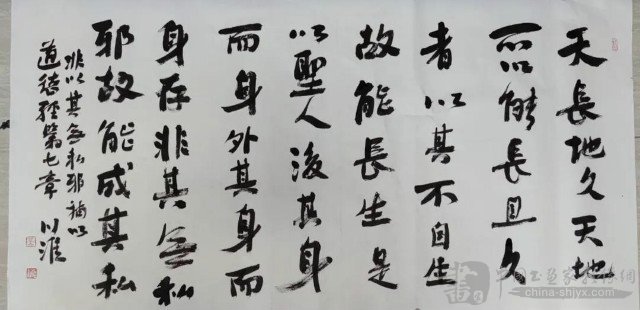 天長地久天地
所以能長且久
者以其不自生
故能長生是
以聖人後其身
而身外其身而
身存非其無私
邪故能成其私
非以其無私邪補以
道德經第七章 川淮
中国书画家教育网
china-shjyx.com